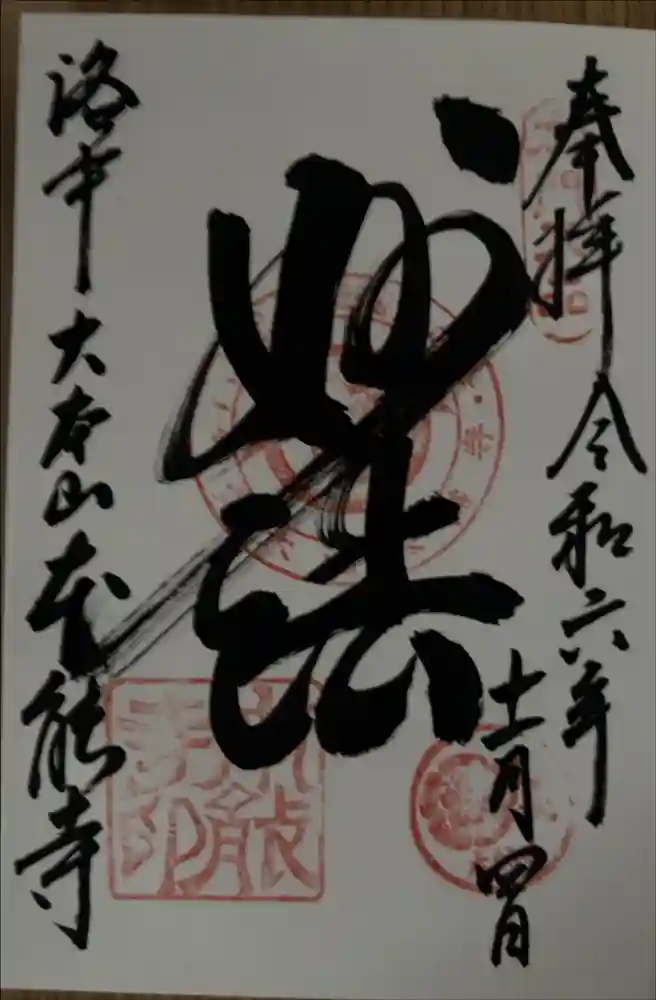 奉拝 令和六年
十一月四日
妙法
洛中 大本山 本能寺
本能
寺印